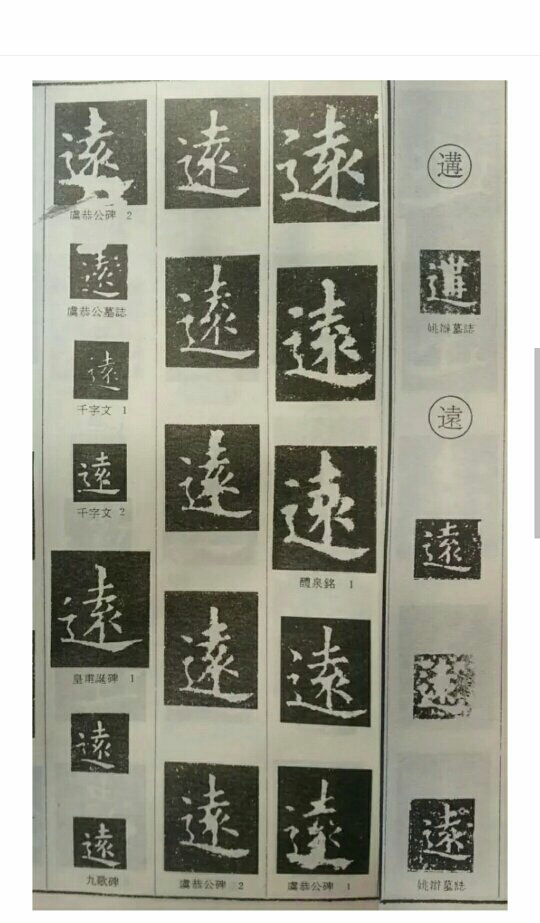 遘
遘
姚辯墓誌
遠
遠
遠
遠
姚辯墓誌
遠
遠
遠
醴泉銘 1
遠
遠
虞恭公碑 1
遠
遠
遠
遠
遠
虞恭公碑 2
遠
虞恭公碑 2
遠
虞恭公墓誌
遠
千字文 1
遠
千字文 2
遠
皇甫誕碑 1
遠
遠
九歌碑